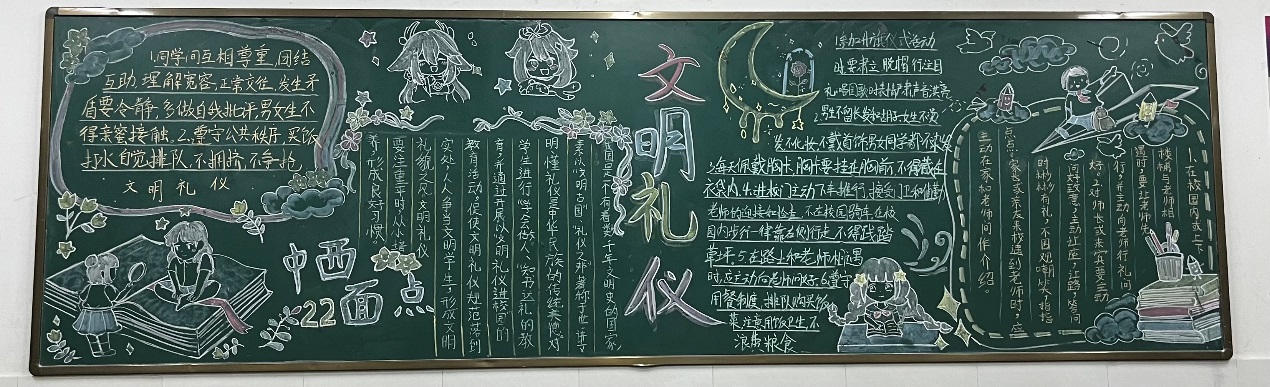 1.同学间互相尊重、团结
互助、理解宽容、正常交往,发生矛
盾要冷静,多做自我批评,男女生不
得亲密接触。2.遵守公共秩序,买饭
打水自觉排队、不拥挤、不争抢
文明礼仪
中西
面点
22
我国是一个有着数千年文明史的国家,
素以"文明古国""礼仪之邦"著称于世,
明懂礼仪是中华民族的传统美德,对
学生进行"学会做人、知书达礼"的
育,并通过开展以文明礼仪进校园的
教育活动,促使文明礼仪规范落到
实处,人人争当文明学生,形成文明
礼貌之风,文明礼仪
要注重平时,从小
养成良好习惯。
文
明
礼
仪
1.参加升旗仪式活动
时,要肃立、脱帽、行注目
礼,唱国歌时表情严肃声音洪亮
2.男生不留长发
发不化妆不戴首饰男女同学都不
3.每天佩戴胸卡,胸卡要挂在胸前,不得藏在
衣袋内。4.进校门主动下车推行,接受门卫和值勤
老师的迎接和检查,不在校园骑车,在校
园内步行一律靠右侧行走,不得践踏
草坪。5.在路上和老师相遇
时,应主动向老师问好。6.遵守
用餐制度,排队购买饭
菜,注意用饭卫生,不
浪费粮食
1.在校园内或上下
楼梯与老师相
遇时,要让老师先
行,并主动向老师行礼问
好。2.对师长或来宾要主动
问好致意,主动让座、让路,答问
时彬彬有礼,不围观嘲笑、指指
点点。家长或亲友来校遇到老师时,应
主动在家和老师间作介绍。